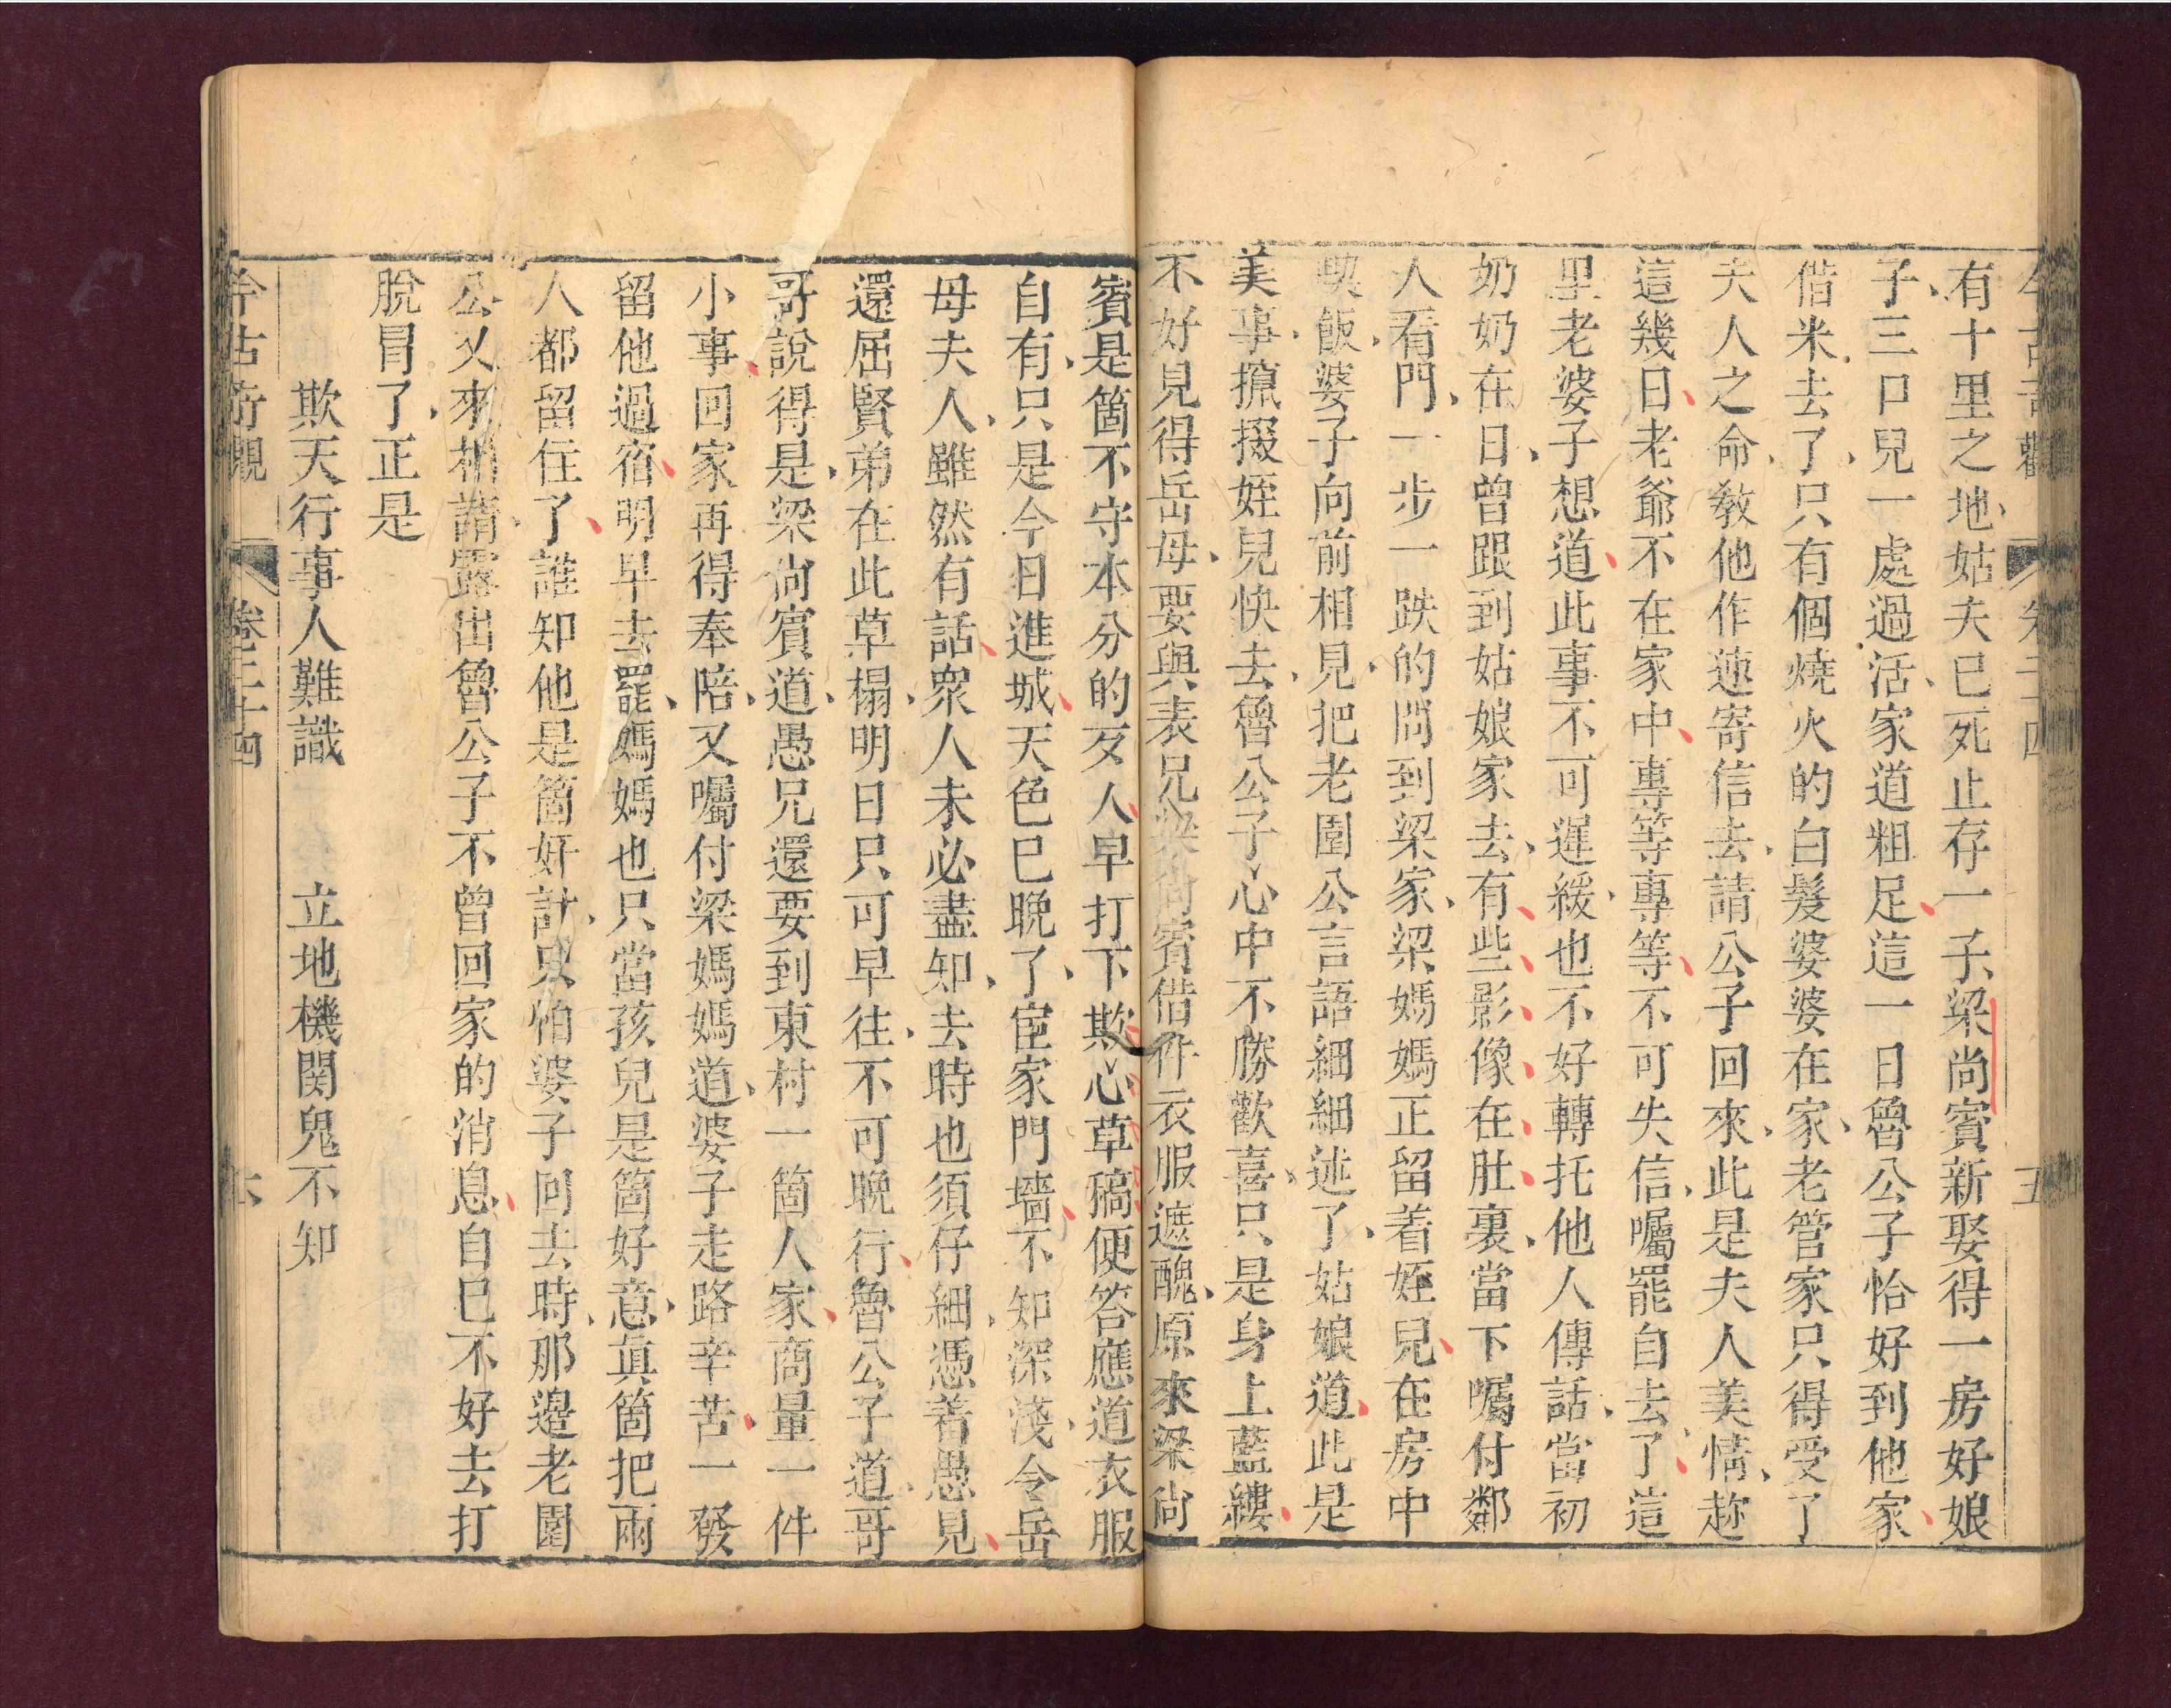 今古奇觀 卷二十四 五
有十里之地姑夫已死止存一子梁尚賓新娶得一房好娘
子三口兒一處過活家道粗足這一日魯公子恰好到他家
借米去了只有個燒火的白髮婆婆在家老管家只得受了
夫人之命教他作速寄信去請公子回來此是夫人美情趂
這幾日老爺不在家中專等專等不可失信囑罷自去了這
里老婆子想道此事不可遲緩也不好轉托他人傳話當初
奶奶在日曾跟到姑娘家去有些影像在肚裏當下囑付鄰
人看門一步一跌的問到梁家梁媽媽正留着姪兒在房中
喫飯婆子向前相見把老園公言語細細述了姑娘道此是
美事攛掇姪兒快去魯公子心中不勝歡喜只是身上藍縷
不好見得岳母要與表兄梁尚賓借件衣服遮醜原來梁尚
賓是箇不守本分的歹人早打下欺心草稿便答應道衣服
自有只是今日進城天色已晚了宦家門墻不知深淺令岳
母夫人雖然有話衆人未必盡知去時也須仔細憑着愚見
還屈賢弟在此草榻明日只可早往不可晚行魯公子道哥
哥說得是梁尚賓道愚兄還要到東村一箇人家商量一件
小事回家再得奉陪又囑付梁媽媽道婆子走路辛苦一發
留他過宿明早去罷媽媽也只當孩兒是箇好意眞箇把兩
人都留住了誰知他是箇奸計只怕婆子回去時那邉老園
公又來相請露出魯公子不曾回家的消息自巳不好去打
脫冒了正是
欺天行事人難識 立地機関鬼不知
今古竒觀 卷二十四 六